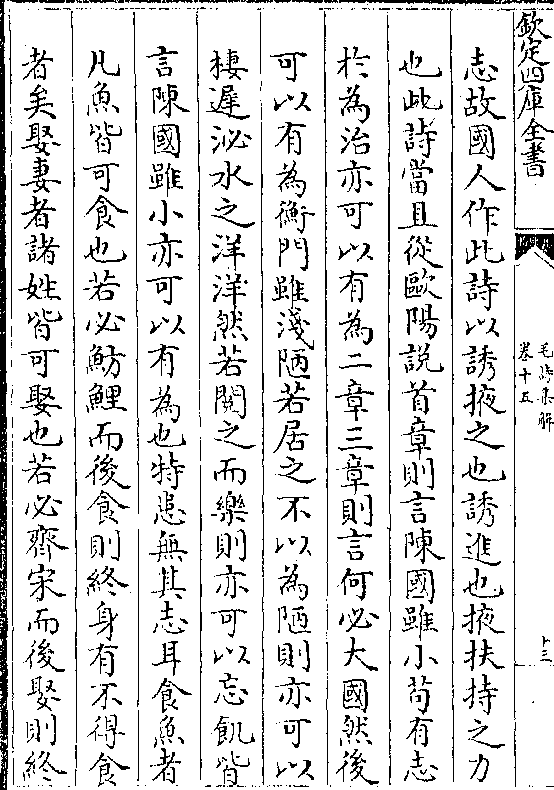 欽定四庫全書
毛詩集解
卷十五
十三
志故國人作此詩以誘掖之也誘進也掖扶持之力
也此詩當且從歐陽説首章則言陳國雖小苟有志
於為治亦可以有為二章三章則言何必大國然後
可以有為衡門雖淺陋若居之不以為陋則亦可以
棲遲泌水之洋洋然若閱之而樂則亦可以忘飢皆
言陳國雖小亦可以有為也特患無其志耳食魚者
凡魚皆可食也若必魴鯉而後食則終身有不得食
者矣娶妻者諸姓皆可娶也若必齊宋而後娶則終